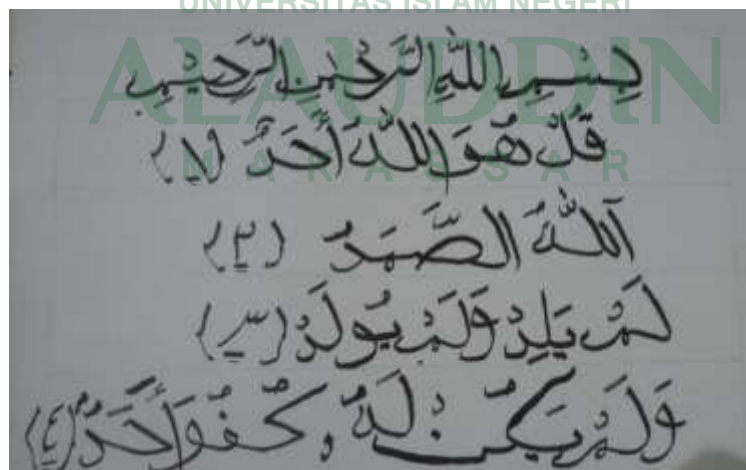 UNIVERSITAS ISLAM NEGERI
ALAUDDIN
MAKASSAR
بِسْمِ اللّٰهِ الرَّحْمٰنِ الرَّحِيْمِ
قُلْ هُوَ اللّٰهُ أَحَدٌ (١)
اَللّٰهُ الصَّمَدُ (٢)
لَمْ يَلِدْ وَلَمْ يُوْلَدْ (٣)
وَلَمْ يَكُنْ لَهُ كُفُوًا أَحَدٌ (٤)